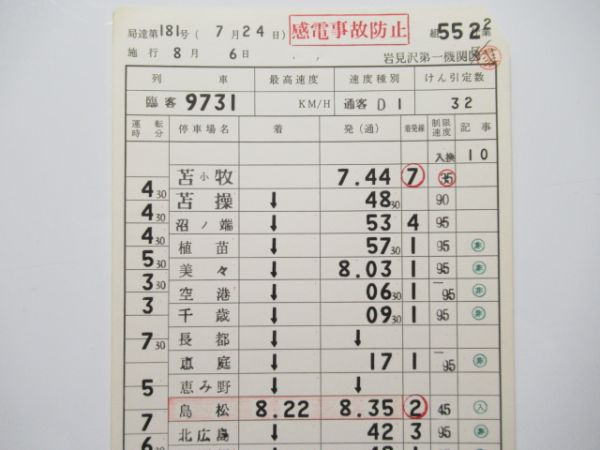 局達第181号(7月24日) 感電事故防止 組552
施行 8月 6日 岩見沢第一機関区
列車 最高速度 速度種別 けん引定数
臨客 9731 KM/H 通客 D1 32
運転時分 停車場名 着 発(通) 着発線 制限速度 記事
入換 10
苫小牧 7.44 7
4 30
苫操 ↓ 48 30 90
4 30
沼ノ端 ↓ 53 4 95
4 30
植苗 ↓ 57 30 1 95
5 30
美々 ↓ 8.03 1 95
3 30
空港 ↓ 06 30 1 95
3
千歳 ↓ 09 30 1 95
7 30
長都 ↓ ↓
恵庭 ↓ 17 1 95
5
恵み野 ↓ ↓
島松 8.22 8.35 2 45 入
7
北広島 ↓ 42 3 95
6 30